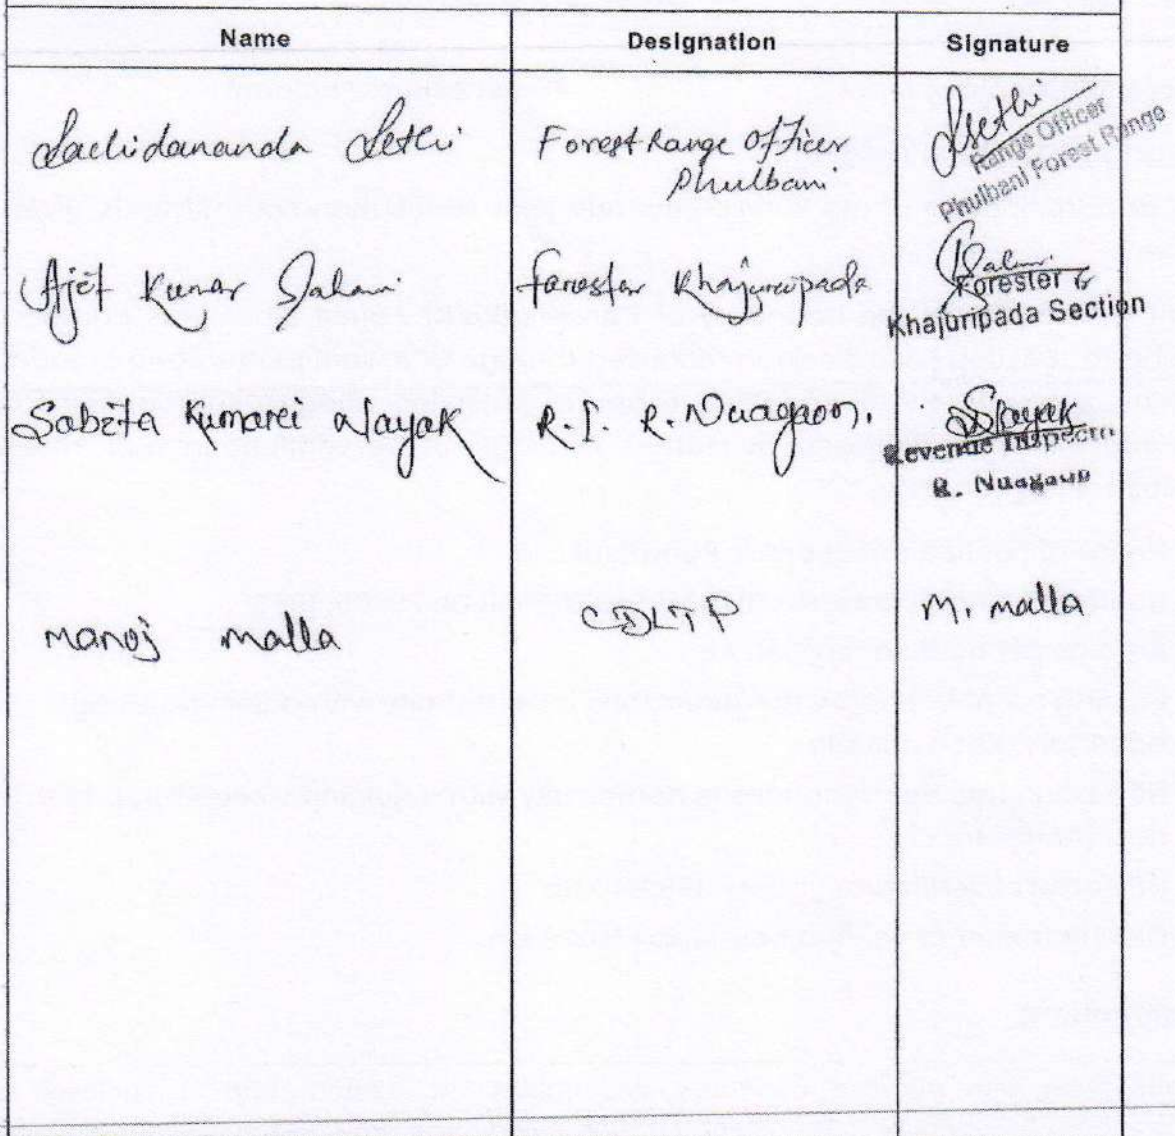 Name Designation Signature
Sachidananda Sethi Forest Range Officer Ssethi
Phulbani Range Officer
Phulbani Forest Range
Ajit Kumar Forester Khajuripada
Forester
Khajuripada Section
Sabita Kumari Nayak R.I. R. Nuagaon. SNayak
Revenue Inspecto
R. Nuagaon
manoj malla M. malla